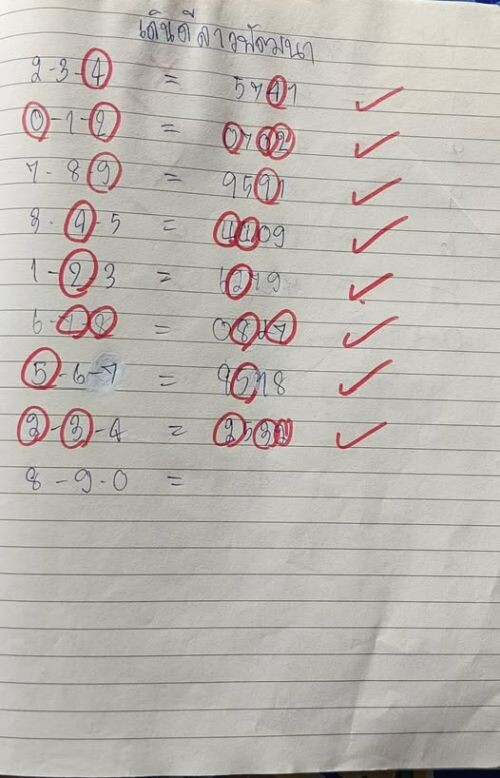 เดินดีลาวพัฒนา
2-3-4 = 5741
0-1-2 = 0702
7-8-9 = 9591
3-4-5 = 4409
1-2-3 = 6279
6-7-8 = 0827
5-6-7 = 9518
2-3-4 = 2532
8-9-0 =